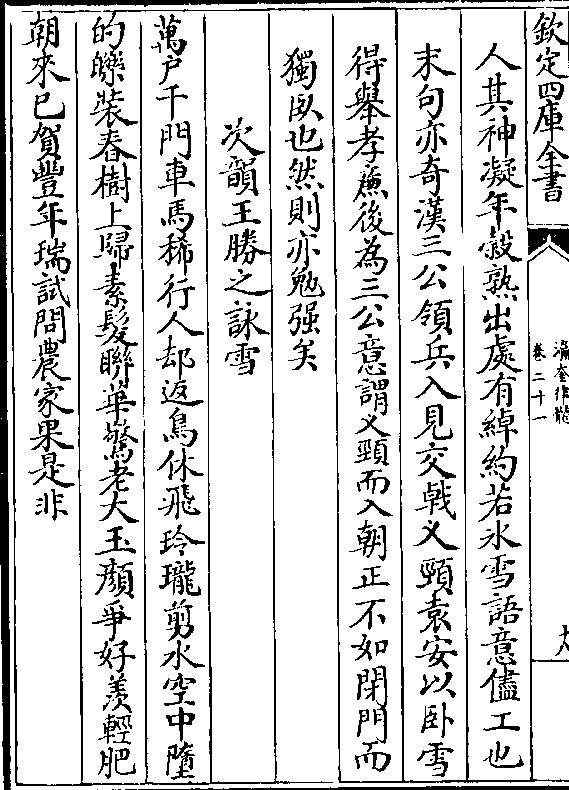 欽定四庫全書
瀛奎律髓
卷二十一
人其神凝年穀熟出處有綽約若氷雪語意儘工也
末句亦奇漢三公領兵入見交戟乂頸袁安以卧雪
得舉孝廉後為三公意謂乂頸而入朝正不如閉門而
獨卧也然則亦勉强矣
次韻王勝之詠雪
萬戶千門車馬稀行人却返鳥休飛玲瓏剪水空中墮
的皪装春樹上歸素髮聯華驚老大玉顔爭好羡輕肥
朝來已賀豐年瑞試問農家果是非